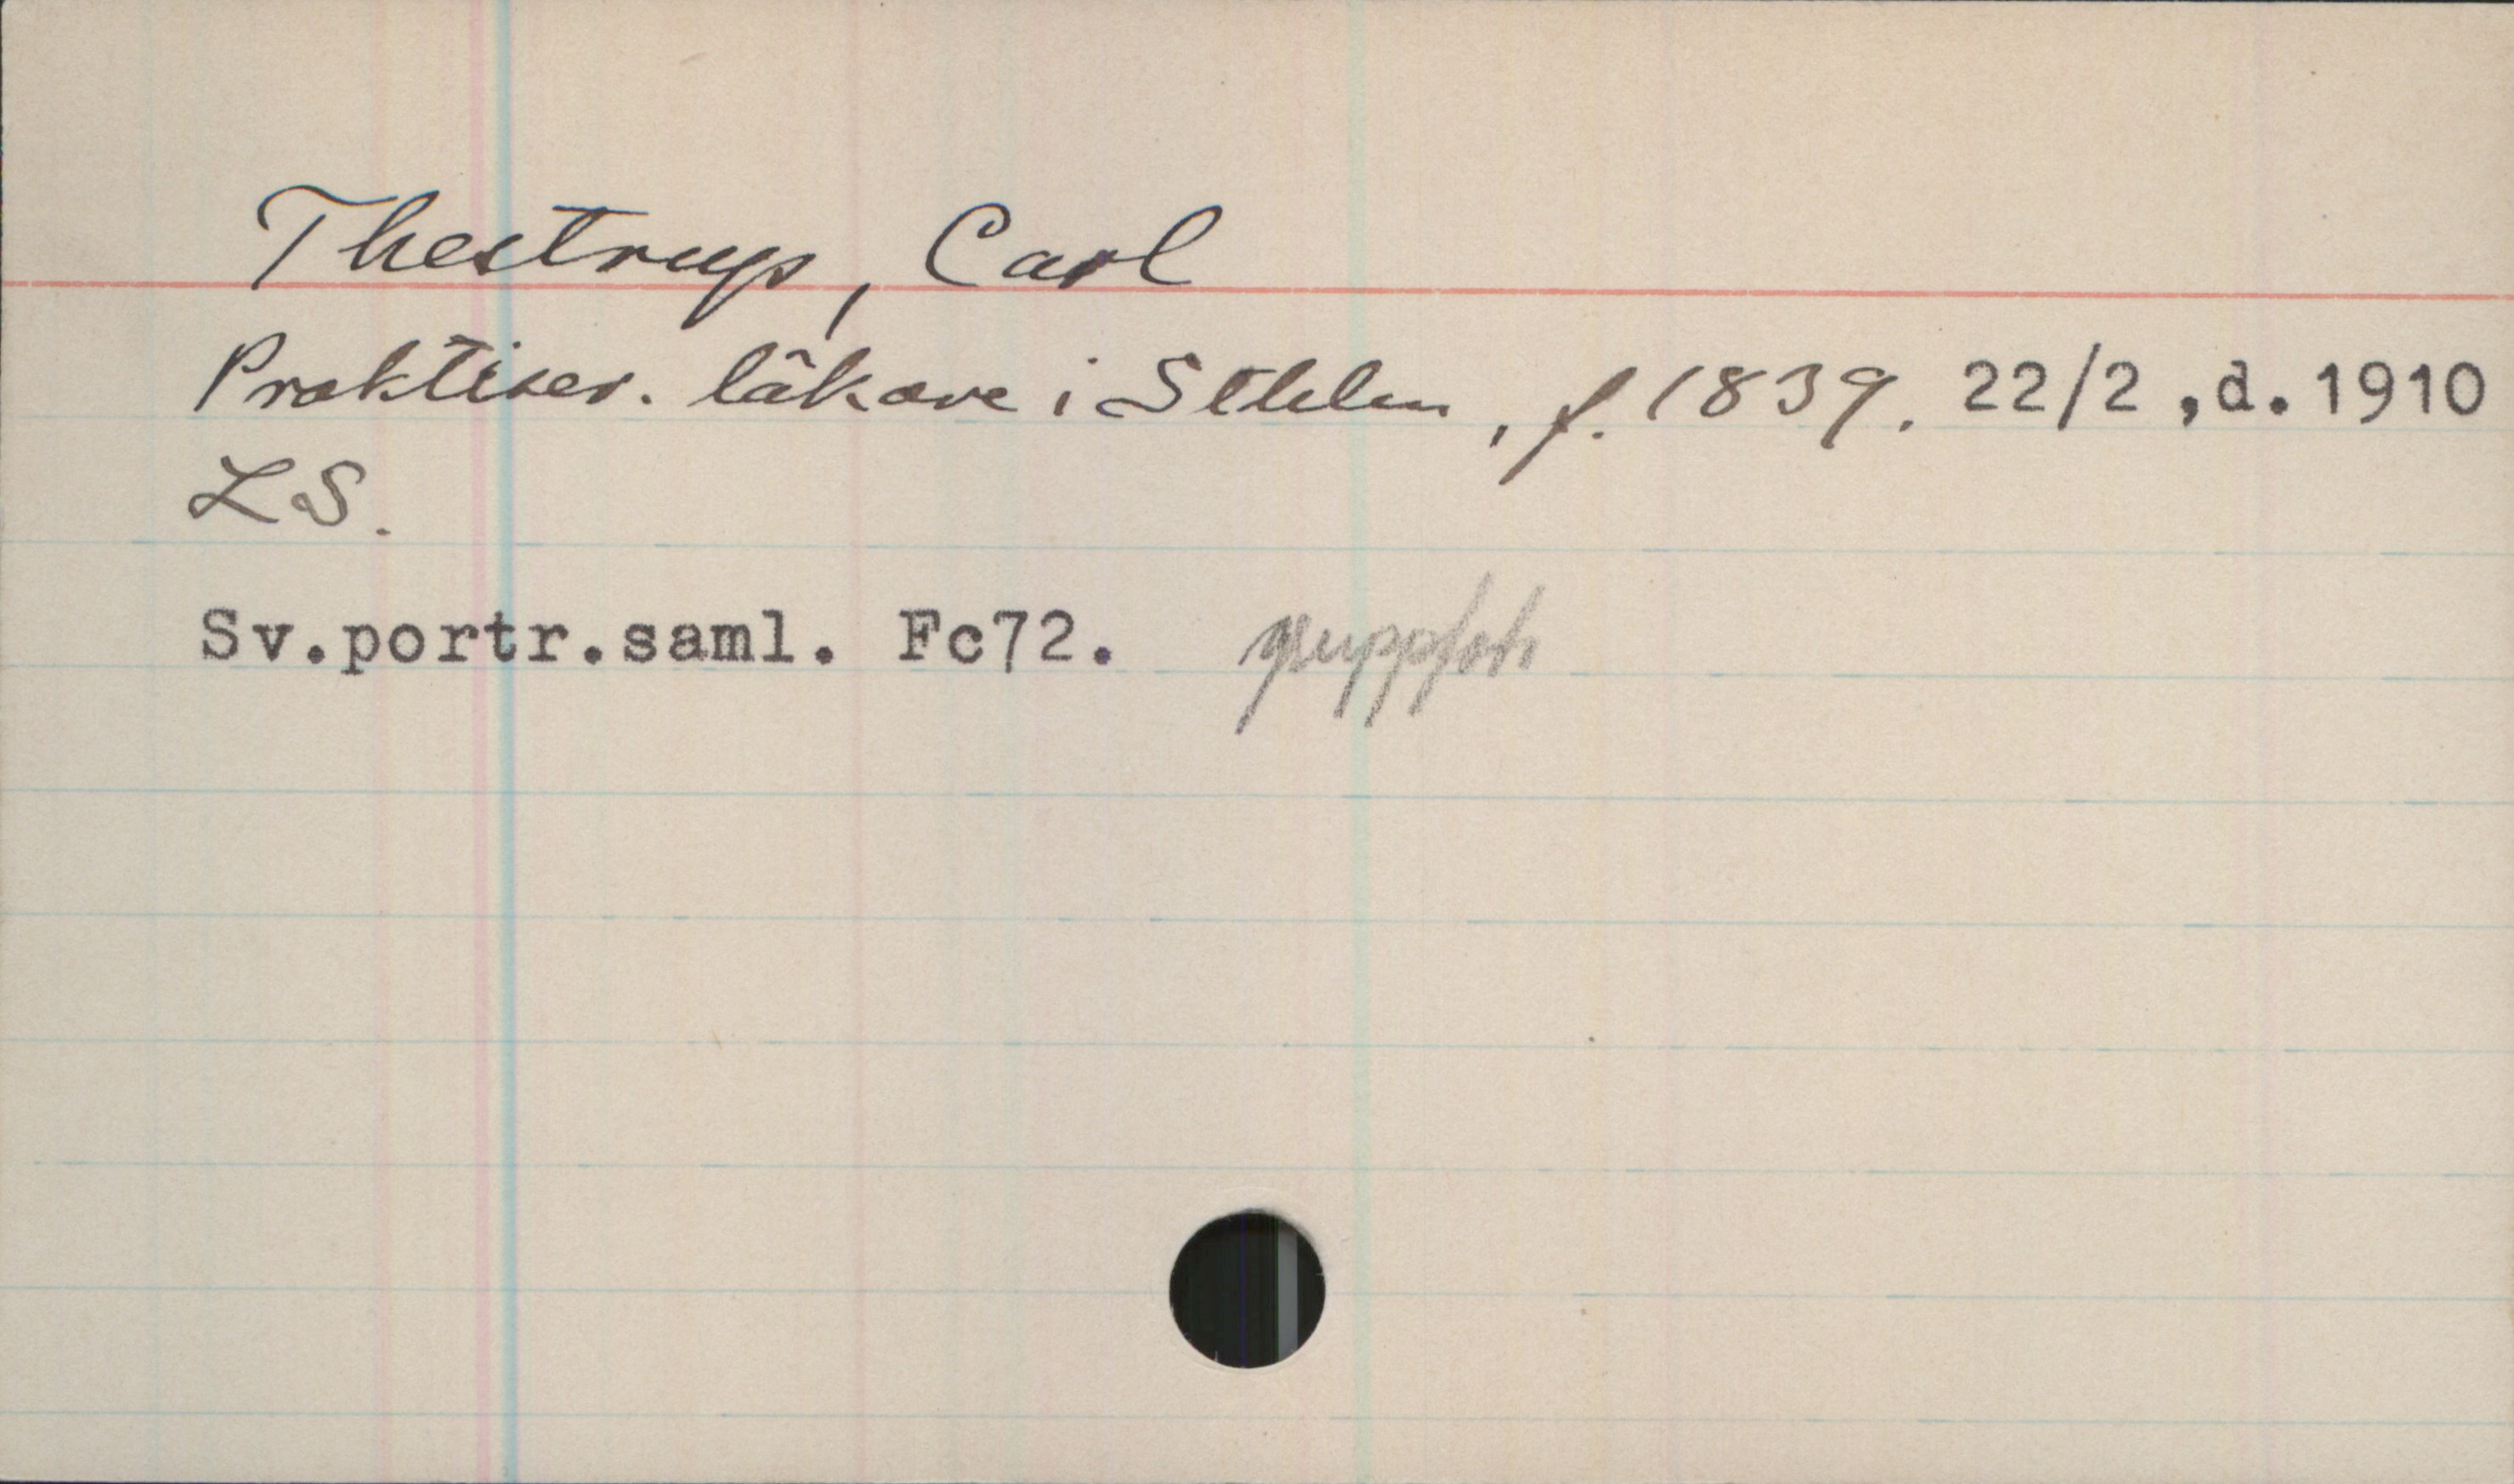 Thestrup, Carl
Praktiser. läkare i Sthlm, f. 1839. 22/2 ,d.1910
LS.
Sv.portr.saml. Fc72. gruppfoto